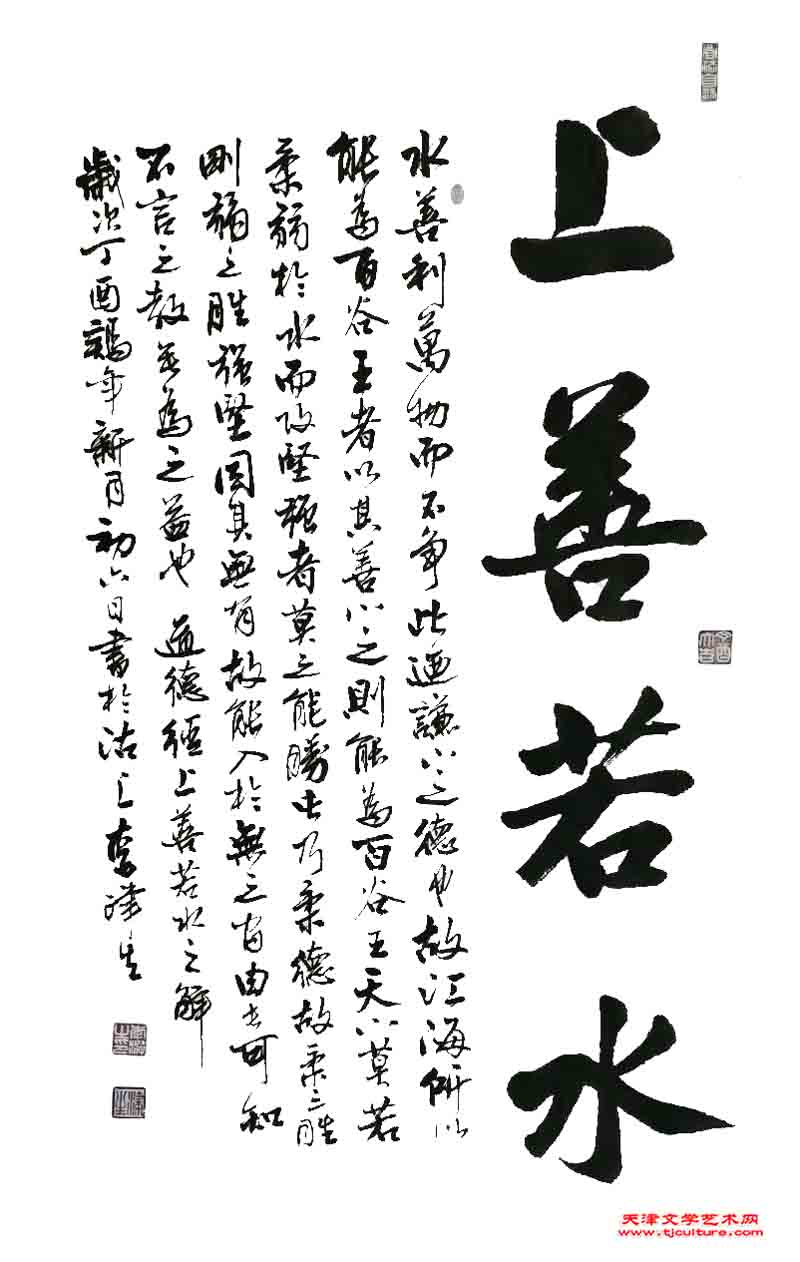 上善若水
水善利萬物而不争此遁謙下之德也故江海所以
能為百谷王者以其善下之則能為百谷王天下莫若
柔弱於水而攻堅強者莫之能勝此乃柔德故柔之胜
剛弱之胜強堅因其無有故能入於無之間由此可知
不言之教無為之益也 道德經上善若水之解
歲次丁酉鷄年新月初六日書於沽上李澤生
天津文学艺术网
www.tjculture.com